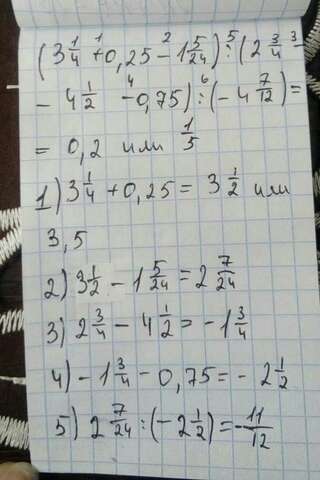 (3 1/4 +¹ 0,25 -² 1 5/24) :⁵ (2 3/4 -³
- 4 1/2 -⁴ 0,75) :⁶ (- 4 7/12) =
= 0,2 или 1/5
1) 3 1/4 + 0,25 = 3 1/2 или
3,5
2) 3 1/2 - 1 5/24 = 2 7/24
3) 2 3/4 - 4 1/2 = - 1 3/4
4) - 1 3/4 - 0,75 = - 2 1/2
5) 2 7/24 : (- 2 1/2) = - 11/12